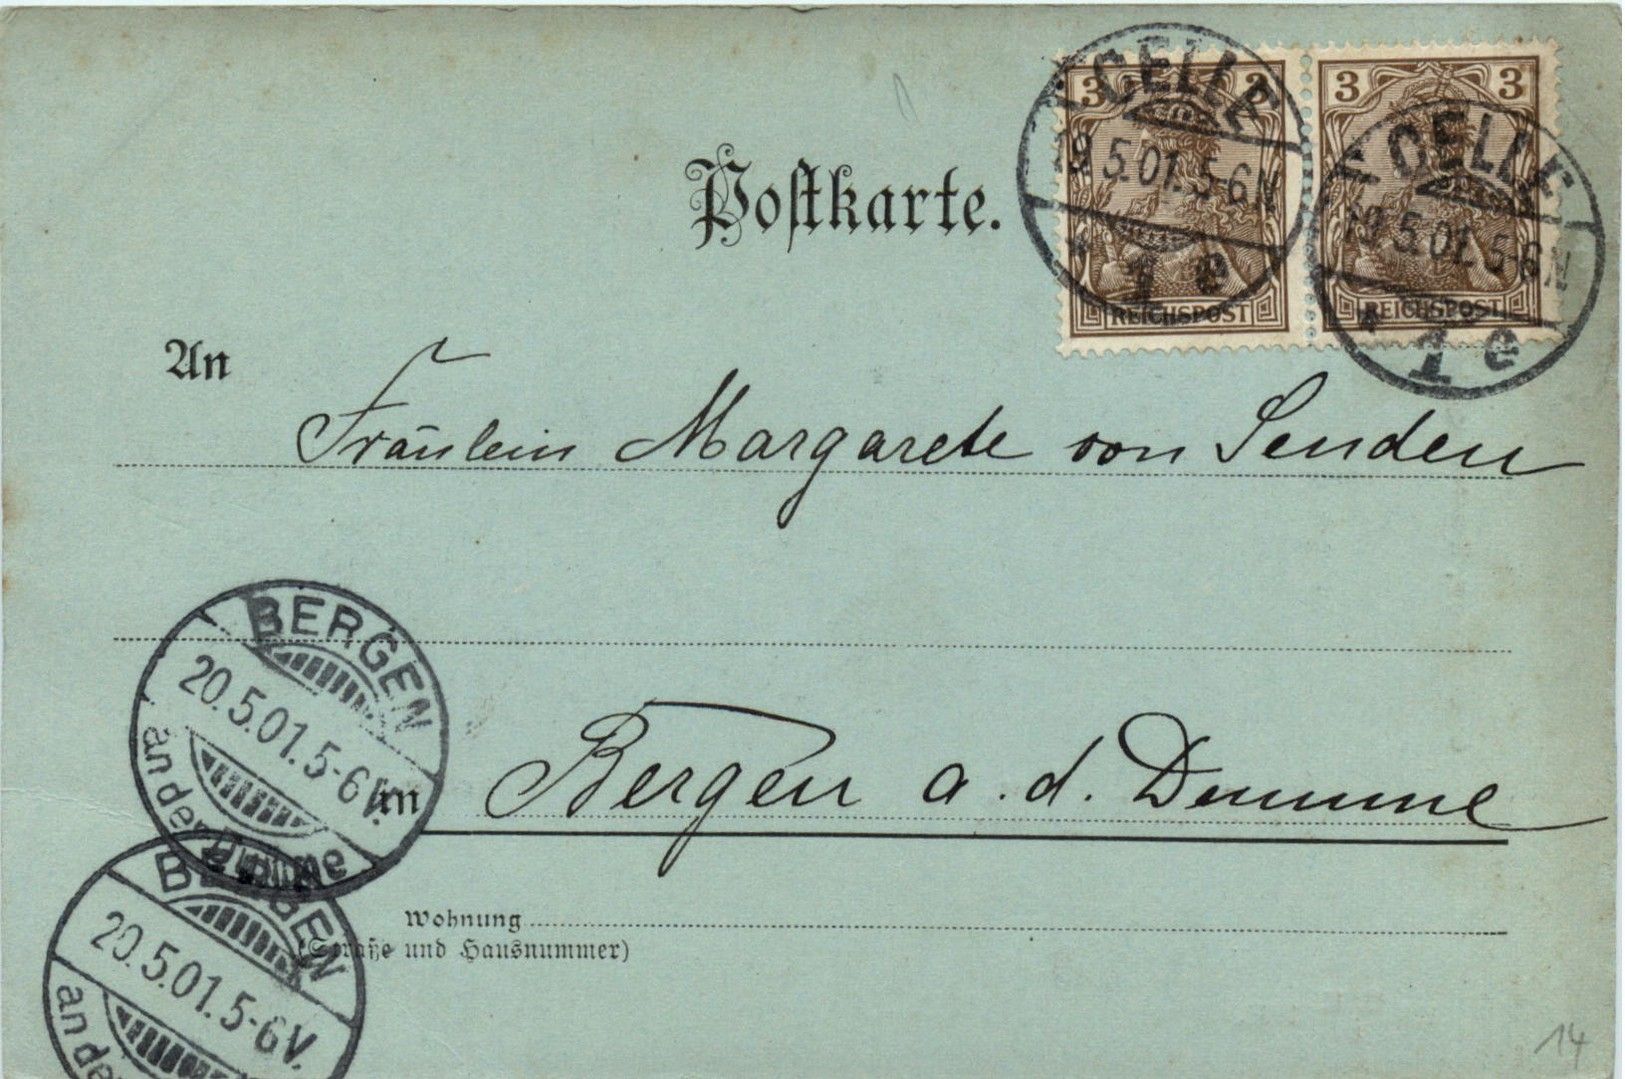 3 3
REICHSPOST
3 3
REICHSPOST
CELLE
19.5.01.5-6N
* 1 e
CELLE
19.5.01.5-6N
* 1 e
Postkarte.
An
Fräulein Margarete von Senden
BERGEN
20.5.01.5-6V.
an der Dumme
in Bergen a. d. Dumme
BERGEN
20.5.01.5-6V.
an der
Wohnung
(Straße und Hausnummer)
14